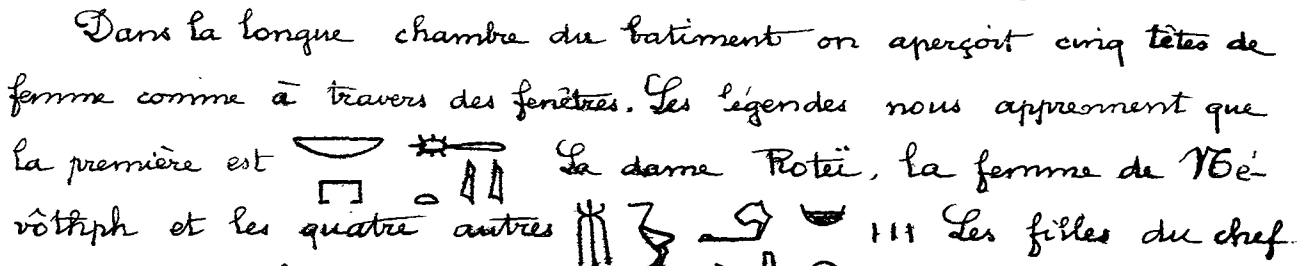 Dans la longue chambre du batiment on aperçoit cinq têtes de
femme comme à travers des fenêtres. Les légendes nous apprennent que
la première est La dame Roteï, la femme de Né-
vôthph et les quatre autres Les filles du chef